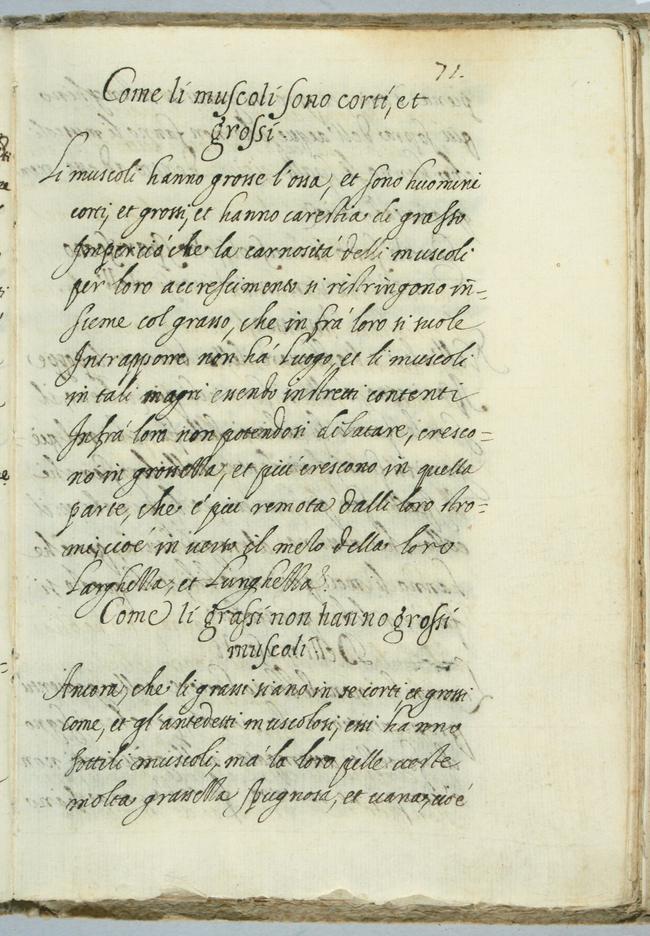 71.
Come li muscoli sono corti, et
grossi
Li muscoli hanno grosse l'ossa, et sono huomini
corti, et grossi, et hanno carestia di grasso
Imperciò che la carnosità delli muscoli
per loro accrescimento si ristringono in=
sieme col grasso, che in frà loro si suole
Intrapporre non hà Luogo, et li muscoli
in tali magri essendo in stretti contenti
In frà loro non potendosi dilatare, cresco=
no in grossezza, et più crescono in quella
parte, che è più remota dalli loro stro=
mi, cioè in verso il mezo della loro
Larghezza, et Lunghezza.
Come li grassi non hanno grossi
muscoli
Ancora, che li grassi siano in se corti et grossi
come, et gl'antedetti muscolosi, essi hanno
sottili muscoli, mà la loro pelle veste
molta grassezza spugnosa, et vana, cioè